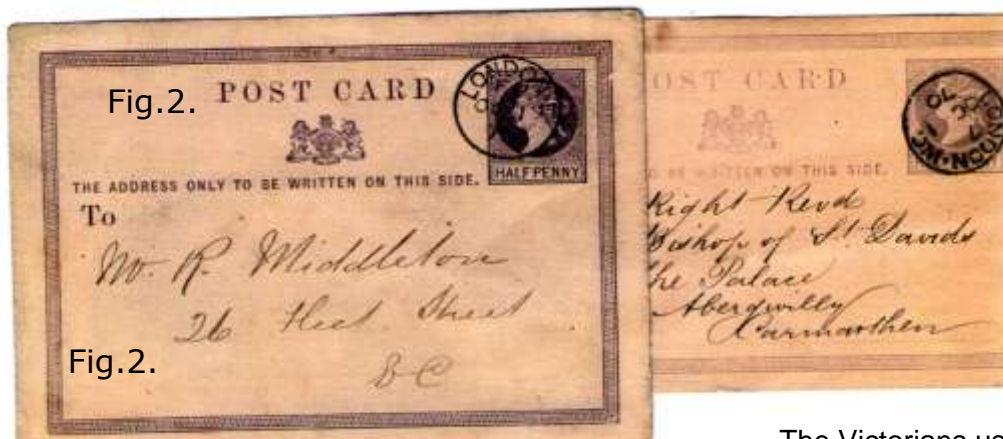 Fig.2. POST CARD
THE ADDRESS ONLY TO BE WRITTEN ON THIS SIDE.
To
Mr. R. Middleton
26 Fleet Street
E C
Fig.2.
HALFPENNY
OST CARD
BE WRITTEN ON THIS SIDE.
Right Revd
Bishop of St Davids
he Palace
Abergwilly
Carmarthen
The Victorians us